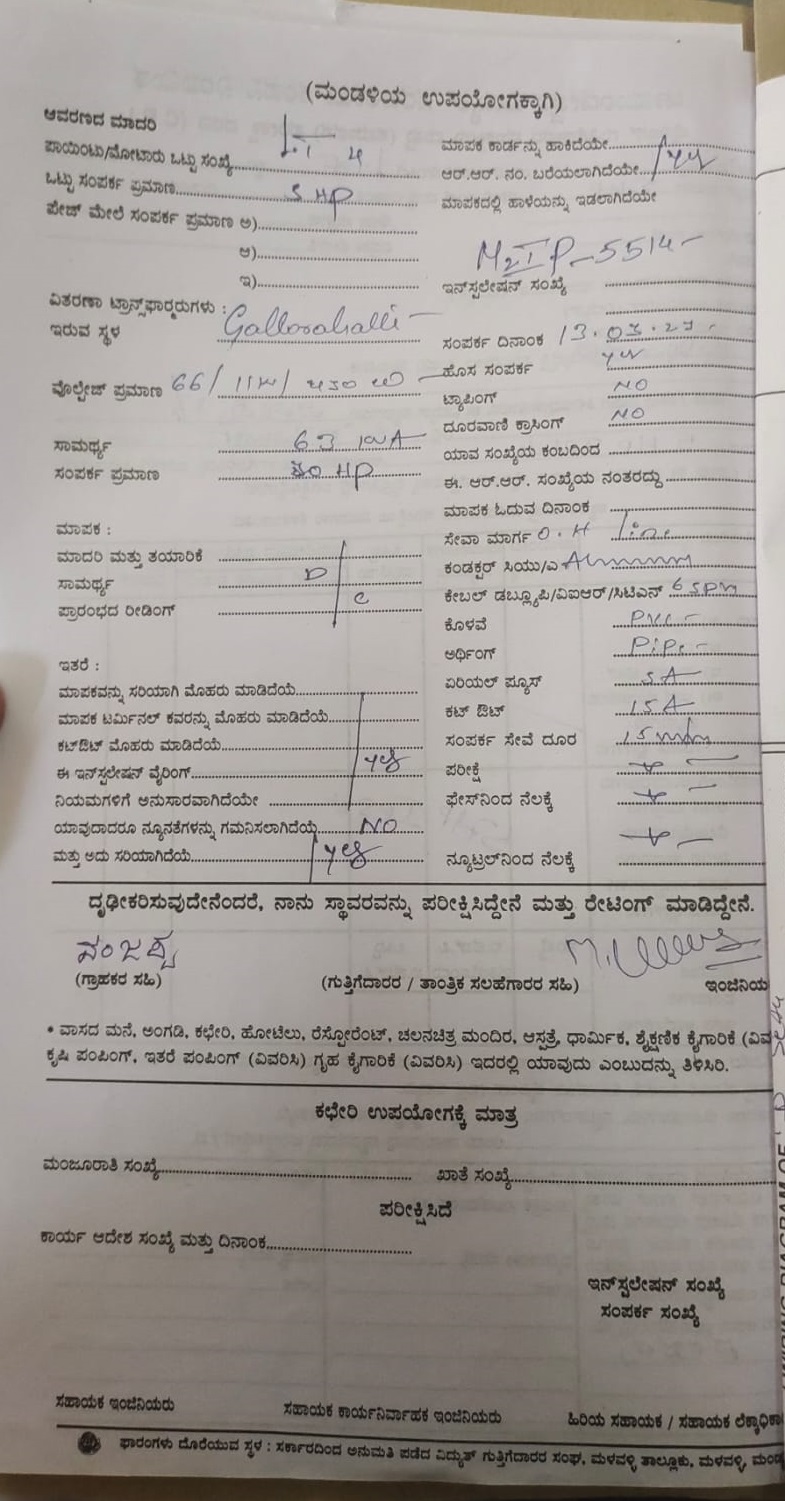 (ಮಂಡಳಿಯ ಉಪಯೋಗಕ್ಕಾಗಿ)
ಆವರಣದ ಮಾದರಿ
ಪಾಯಿಂಟು/ಮೋಟಾರು ಒಟ್ಟು ಸಂಖ್ಯೆ
ಒಟ್ಟು ಸಂಪರ್ಕ ಪ್ರಮಾಣ 5 HP
ಪೇಜ್ ಮೇಲೆ ಸಂಪರ್ಕ ಪ್ರಮಾಣ ಅ)
ಆ)
ಇ)
ವಿತರಣಾ ಟ್ರಾನ್ಸ್‌ಫಾರ್‍ಮರುಗಳು :
ಇರುವ ಸ್ಥಳ
ವೊಲ್ಟೇಜ್ ಪ್ರಮಾಣ 66/11
ಸಾಮರ್ಥ್ಯ 63 KVA
ಸಂಪರ್ಕ ಪ್ರಮಾಣ HP
ಮಾಪಕ :
ಮಾದರಿ ಮತ್ತು ತಯಾರಿಕೆ
ಸಾಮರ್ಥ್ಯ D
ಪ್ರಾರಂಭದ ರೀಡಿಂಗ್ C
ಇತರೆ :
ಮಾಪಕವನ್ನು ಸರಿಯಾಗಿ ಮೊಹರು ಮಾಡಿದೆಯೆ
ಮಾಪಕ ಟರ್ಮಿನಲ್ ಕವರನ್ನು ಮೊಹರು ಮಾಡಿದೆಯೆ
ಕಟ್‌ಔಟ್ ಮೊಹರು ಮಾಡಿದೆಯೆ
ಈ ಇನ್‌ಸ್ಟಲೇಷನ್ ವೈರಿಂಗ್ yes
ನಿಯಮಗಳಿಗೆ ಅನುಸಾರವಾಗಿದೆಯೇ
ಯಾವುದಾದರೂ ನ್ಯೂನತೆಗಳನ್ನು ಗಮನಿಸಲಾಗಿದೆಯೆ NO
ಮತ್ತು ಅದು ಸರಿಯಾಗಿದೆಯೆ yes
ಮಾಪಕ ಕಾರ್ಡನ್ನು ಹಾಕಿದೆಯೇ
ಆರ್.ಆರ್. ನಂ. ಬರೆಯಲಾಗಿದೆಯೇ yes
ಮಾಪಕದಲ್ಲಿ ಹಾಳೆಯನ್ನು ಇಡಲಾಗಿದೆಯೇ
M2IP-5514-
ಇನ್‌ಸ್ಟಲೇಷನ್ ಸಂಖ್ಯೆ
ಸಂಪರ್ಕ ದಿನಾಂಕ 13.03.23
ಹೊಸ ಸಂಪರ್ಕ yes
ಟ್ಯಾಪಿಂಗ್ NO
ದೂರವಾಣಿ ಕ್ರಾಸಿಂಗ್ NO
ಯಾವ ಸಂಖ್ಯೆಯ ಕಂಬದಿಂದ
ಈ. ಆರ್.ಆರ್. ಸಂಖ್ಯೆಯ ನಂತರದ್ದು
ಮಾಪಕ ಓದುವ ದಿನಾಂಕ
ಸೇವಾ ಮಾರ್ಗ O.H line
ಕಂಡಕ್ಟರ್ ಸಿಯು/ಎ
ಕೇಬಲ್ ಡಬ್ಲ್ಯೂಪಿ/ವಿಐಆರ್/ಸಿಟಿಎಸ್
ಕೊಳವೆ PVC-
ಅರ್ಥಿಂಗ್ Pipe-
ಏರಿಯಲ್ ಫ್ಯೂಸ್ 5A
ಕಟ್ ಔಟ್ 15A
ಸಂಪರ್ಕ ಸೇವೆ ದೂರ
ಪರೀಕ್ಷೆ
ಫೇಸ್‌ನಿಂದ ನೆಲಕ್ಕೆ
ನ್ಯೂಟ್ರಲ್‌ನಿಂದ ನೆಲಕ್ಕೆ
ದೃಢೀಕರಿಸುವುದೇನೆಂದರೆ, ನಾನು ಸ್ಥಾವರವನ್ನು ಪರೀಕ್ಷಿಸಿದ್ದೇನೆ ಮತ್ತು ರೇಟಿಂಗ್ ಮಾಡಿದ್ದೇನೆ.
(ಗ್ರಾಹಕರ ಸಹಿ) (ಗುತ್ತಿಗೆದಾರರ / ತಾಂತ್ರಿಕ ಸಲಹೆಗಾರರ ಸಹಿ) ಇಂಜಿನಿಯ
* ವಾಸದ ಮನೆ, ಅಂಗಡಿ, ಕಛೇರಿ, ಹೋಟೆಲು, ರೆಸ್ಟೋರೆಂಟ್, ಚಲನಚಿತ್ರ ಮಂದಿರ, ಆಸ್ಪತ್ರೆ, ಧಾರ್ಮಿಕ, ಶೈಕ್ಷಣಿಕ ಕೈಗಾರಿಕೆ (ವಿವ
ಕೃಷಿ ಪಂಪಿಂಗ್, ಇತರೆ ಪಂಪಿಂಗ್ (ವಿವರಿಸಿ) ಗೃಹ ಕೈಗಾರಿಕೆ (ವಿವರಿಸಿ) ಇದರಲ್ಲಿ ಯಾವುದು ಎಂಬುದನ್ನು ತಿಳಿಸಿರಿ.
ಕಛೇರಿ ಉಪಯೋಗಕ್ಕೆ ಮಾತ್ರ
ಮಂಜೂರಾತಿ ಸಂಖ್ಯೆ ಖಾತೆ ಸಂಖ್ಯೆ
ಪರೀಕ್ಷಿಸಿದೆ
ಕಾರ್ಯ ಆದೇಶ ಸಂಖ್ಯೆ ಮತ್ತು ದಿನಾಂಕ
ಇನ್‌ಸ್ಟಲೇಷನ್ ಸಂಖ್ಯೆ
ಸಂಪರ್ಕ ಸಂಖ್ಯೆ
ಸಹಾಯಕ ಇಂಜಿನಿಯರು ಸಹಾಯಕ ಕಾರ್ಯನಿರ್ವಾಹಕ ಇಂಜಿನಿಯರು ಹಿರಿಯ ಸಹಾಯಕ / ಸಹಾಯಕ ಲೆಕ್ಕಾಧಿಕಾ
ಫಾರಂಗಳು ದೊರೆಯುವ ಸ್ಥಳ : ಸರ್ಕಾರದಿಂದ ಅನುಮತಿ ಪಡೆದ ವಿದ್ಯುತ್ ಗುತ್ತಿಗೆದಾರರ ಸಂಘ, ಮಳವಳ್ಳಿ ತಾಲ್ಲೂಕು, ಮಳವಳ್ಳಿ, ಮಂಡ